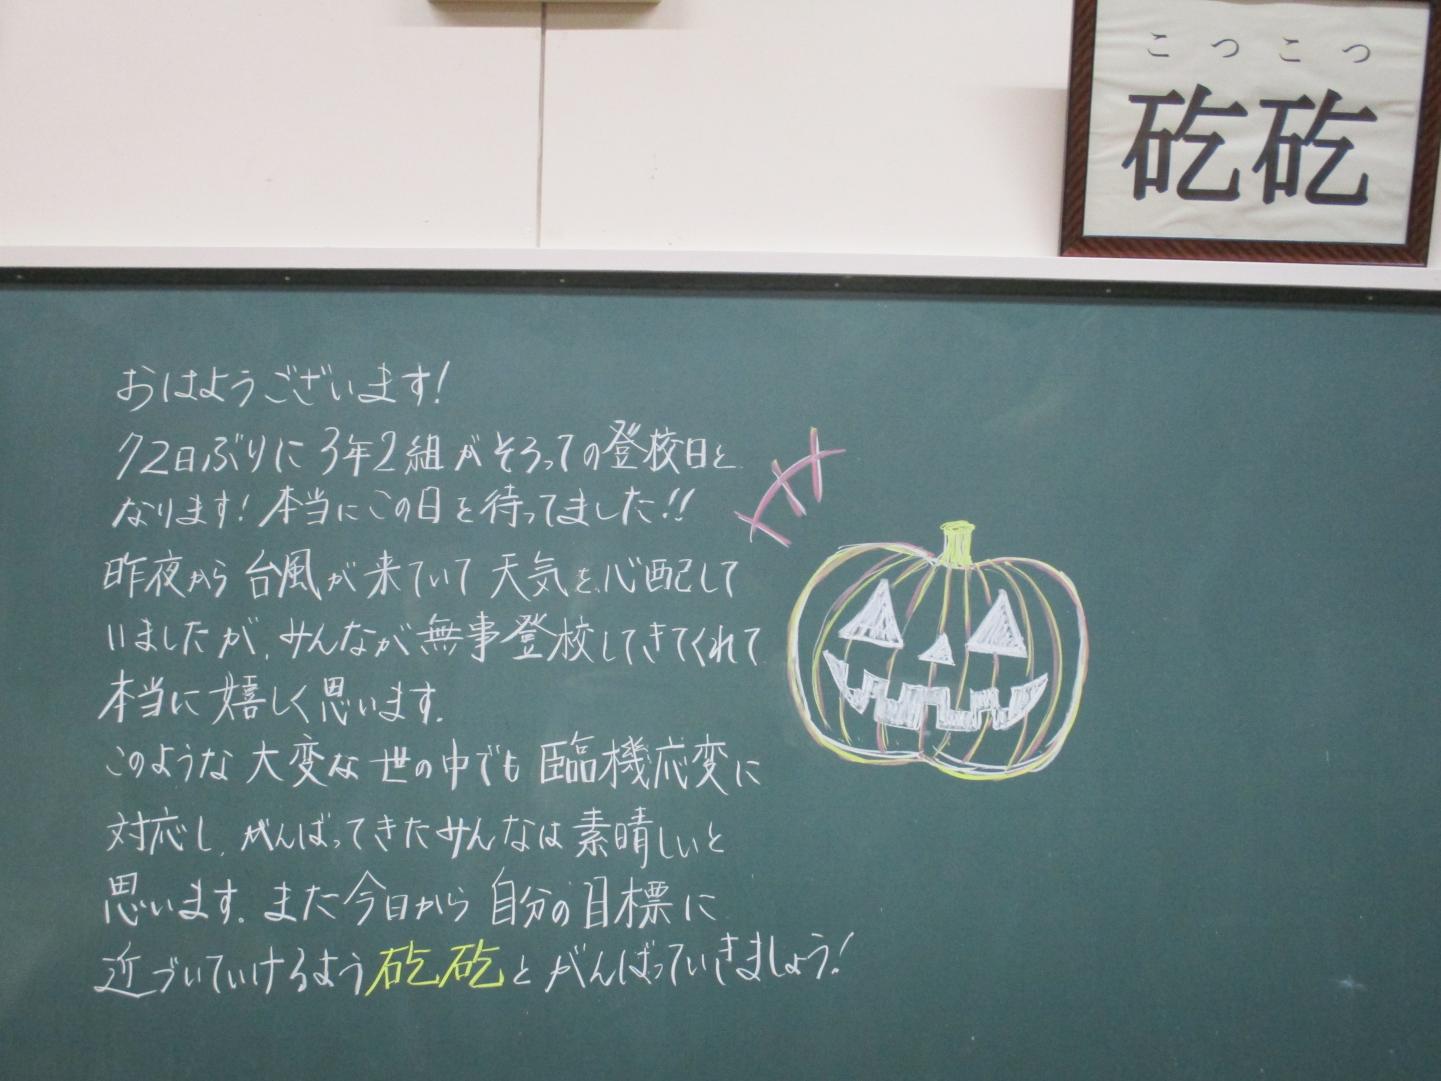 こつこつ
矻矻
おはようございます!
72日ぶりに3年2組がそろっての登校日と
なります!本当にこの日を待ってました!!
昨夜から台風が来ていて天気を心配して
いましたが、みんなが無事登校してきてくれて
本当に嬉しく思います。
このような大変な世の中でも臨機応変に
対応し、がんばってきたみんなは素晴しいと
思います。また今日から自分の目標に
近づいていけるよう矻矻とがんばっていきましょう!